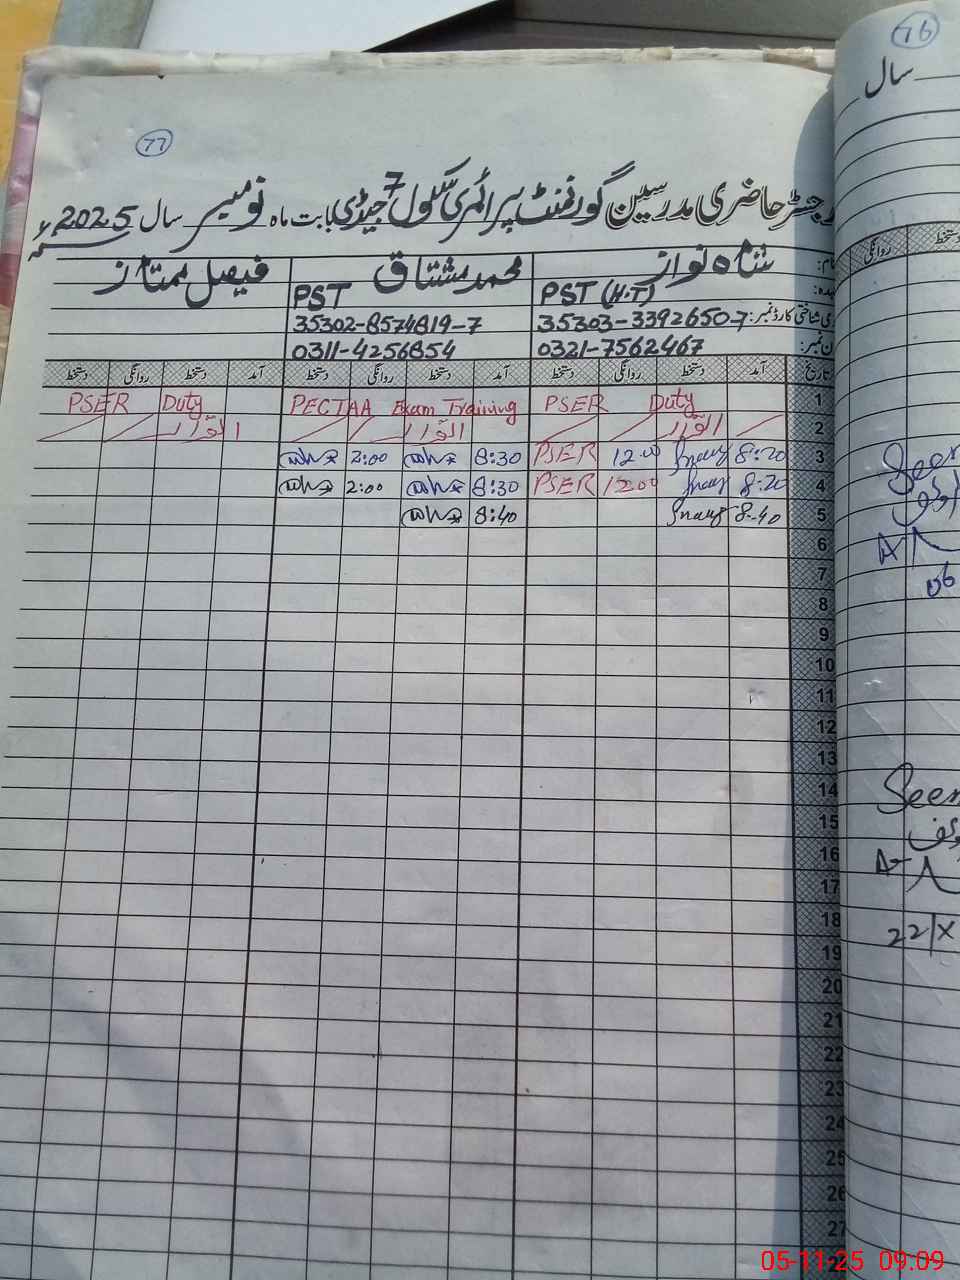 76
سال
77
رجسٹر حاضری مدرسین گورنمنٹ پرائمری سکول 7 جیڈی بابت ماہ نومبر سال 2025ء
نام: شاہ نواز محمد مشتاق فیصل ممتاز
PST (H.T) PST
35303-3392650-7 35302-8574819-7
0321-7562467 0311-4256854
تاریخ آمد دستخط روانگی دستخط آمد دستخط روانگی دستخط آمد دستخط روانگی دستخط
روانگی دستخط
PSER Duty PECTAA Exam Training PSER Duty 1
اتوار اتوار اتوار 2
2:00 8:30 PSER 12:00 8:20 3
2:00 8:30 PSER 12:00 8:20 4
8:40 8:40 5
6
7
8
9
10
11
12
13
14
15
16
17
18
19
20
21
22
23
24
25
26
27
Seen
06
Seen
22/X
05-11-25 09.09